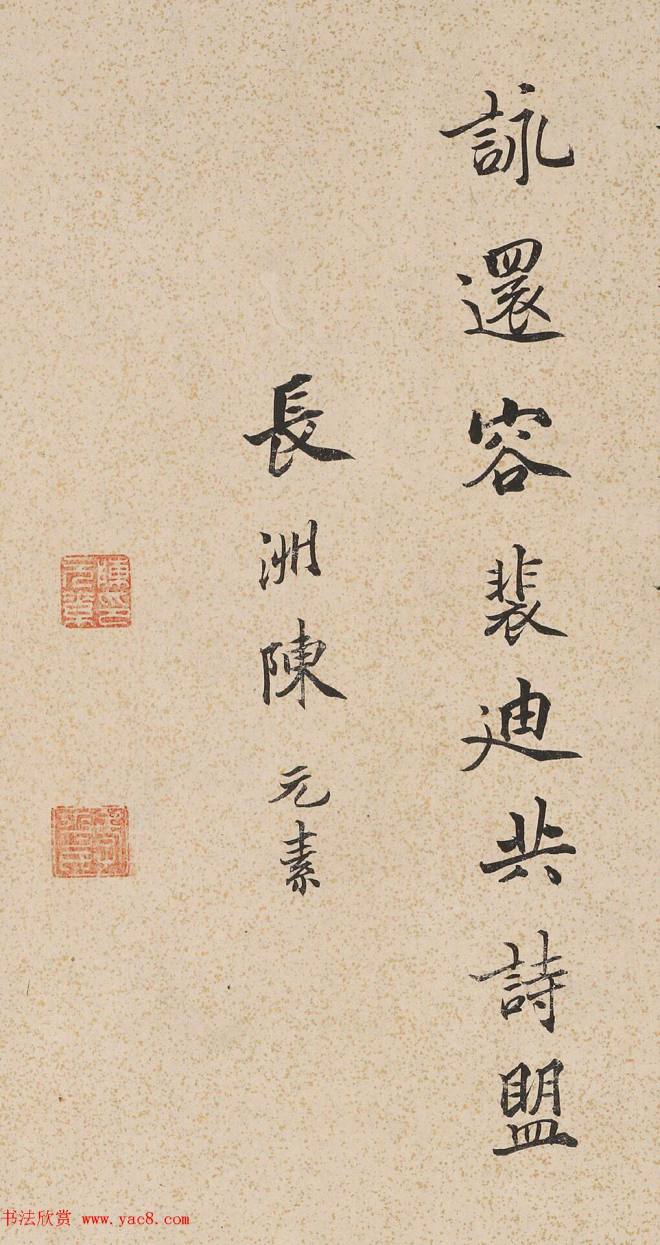 詠還容裴迪共詩盟
長洲陳元素
陳印元素
书法欣赏 www.yac8.com